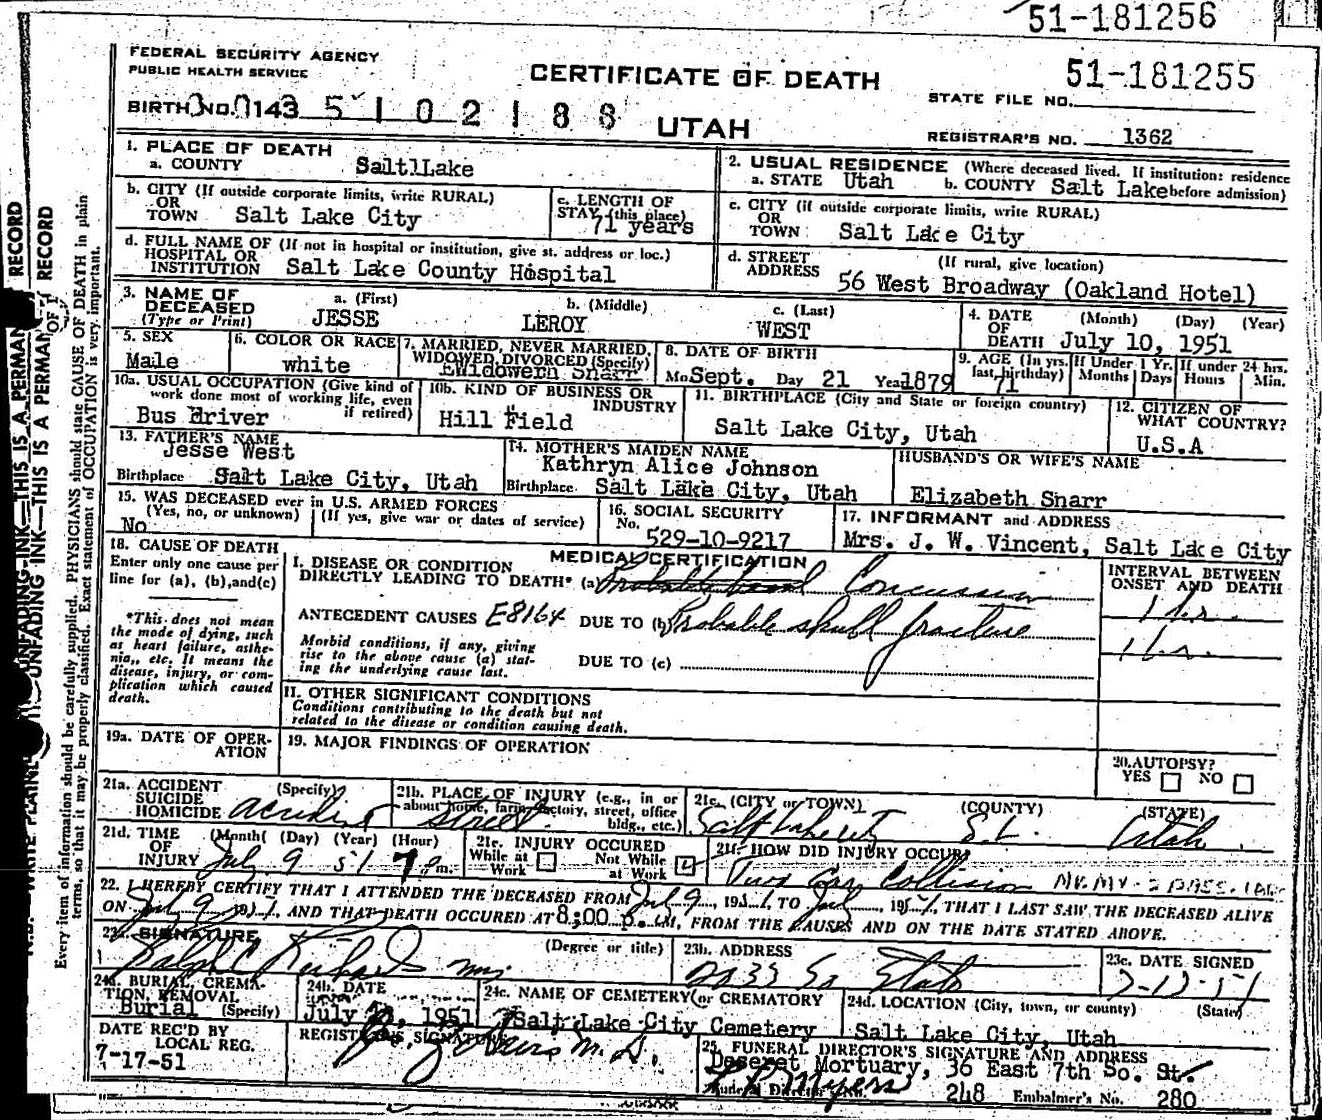 51-181256
FEDERAL SECURITY AGENCY
PUBLIC HEALTH SERVICE
CERTIFICATE OF DEATH
51-181255
STATE FILE NO.
BIRTH NO. 0143 5102188
UTAH
REGISTRAR'S NO. 1362
1. PLACE OF DEATH
a. COUNTY SaltlLake
2. USUAL RESIDENCE (Where deceased lived. If institution: residence before admission)
a. STATE Utah b. COUNTY Salt Lake
b. CITY (If outside corporate limits, write RURAL) OR TOWN Salt Lake City
c. LENGTH OF STAY (this place) 71 years
c. CITY (if outside corporate limits, write RURAL) OR TOWN Salt Lake City
d. FULL NAME OF (If not in hospital or institution, give st. address or loc.) HOSPITAL OR INSTITUTION Salt Lake County Hospital
d. STREET ADDRESS (If rural, give location) 56 West Broadway (Oakland Hotel)
3. NAME OF DECEASED (Type or Print)
a. (First) JESSE
b. (Middle) LEROY
c. (Last) WEST
4. DATE OF DEATH (Month) (Day) (Year) July 10, 1951
5. SEX Male
6. COLOR OR RACE white
7. MARRIED, NEVER MARRIED, WIDOWED, DIVORCED (Specify)
8. DATE OF BIRTH
Mo Sept. Day 21 Year 1879
9. AGE (In yrs. last birthday) 71
If Under 1 Yr. Months Days
If under 24 hrs. Hours Min.
10a. USUAL OCCUPATION (Give kind of work done most of working life, even if retired) Bus driver
10b. KIND OF BUSINESS OR INDUSTRY Hill Field
11. BIRTHPLACE (City and State or foreign country) Salt Lake City, Utah
12. CITIZEN OF WHAT COUNTRY? U.S.A
13. FATHER'S NAME Jesse West
Birthplace Salt Lake City, Utah
14. MOTHER'S MAIDEN NAME Kathryn Alice Johnson
Birthplace Salt Lake City, Utah
HUSBAND'S OR WIFE'S NAME Elizabeth Snarr
15. WAS DECEASED ever in U.S. ARMED FORCES
(Yes, no, or unknown) (If yes, give war or dates of service)
No
16. SOCIAL SECURITY No. 529-10-9217
17. INFORMANT and ADDRESS
Mrs. J. W. Vincent, Salt Lake City
18. CAUSE OF DEATH
Enter only one cause per line for (a), (b), and (c)
*This does not mean the mode of dying, such as heart failure, asthenia, etc. It means the disease, injury, or complication which caused death.
MEDICAL CERTIFICATION
INTERVAL BETWEEN ONSET AND DEATH
I. DISEASE OR CONDITION DIRECTLY LEADING TO DEATH* (a) Concussion 1 hr.
ANTECEDENT CAUSES E8164 DUE TO (b) Probable skull fracture 1 hr.
Morbid conditions, if any, giving rise to the above cause (a) stating the underlying cause last.
DUE TO (c)
II. OTHER SIGNIFICANT CONDITIONS
Conditions contributing to the death but not related to the disease or condition causing death.
19a. DATE OF OPERATION
19. MAJOR FINDINGS OF OPERATION
20. AUTOPSY? YES NO
21a. ACCIDENT SUICIDE HOMICIDE (Specify) accident
21b. PLACE OF INJURY (e.g., in or about home, farm, factory, street, office bldg., etc.) street
21c. (CITY or TOWN) (COUNTY) (STATE)
Salt Lake City S.L. Utah
21d. TIME OF INJURY (Month) (Day) (Year) (Hour) July 9 51 7 pm.
21e. INJURY OCCURED
While at Work Not While at Work
21f. HOW DID INJURY OCCUR
Two Car Collision
22. I HEREBY CERTIFY THAT I ATTENDED THE DECEASED FROM July 9, 1951 TO July, 1951, THAT I LAST SAW THE DECEASED ALIVE
ON July 9 1951, AND THAT DEATH OCCURED AT 8:00 p.m, FROM THE CAUSES AND ON THE DATE STATED ABOVE.
23a. SIGNATURE (Degree or title)
Ralph C Richards MD.
23b. ADDRESS
2033 So State
23c. DATE SIGNED
24a. BURIAL, CREMATION, REMOVAL (Specify) Burial
24b. DATE July 1951
24c. NAME OF CEMETERY (or CREMATORY Salt Lake City Cemetery
24d. LOCATION (City, town, or county) (State) Salt Lake City, Utah
DATE REC'D BY LOCAL REG. 7-17-51
REGISTRAR'S SIGNATURE
M.D.
25. FUNERAL DIRECTOR'S SIGNATURE AND ADDRESS
Deseret Mortuary, 36 East 7th So. St.
Myers
248 Embalmer's No. 280
UNFADING INK—THIS IS A PERMANENT RECORD
Every item of information should be carefully supplied. PHYSICIANS should state CAUSE OF DEATH in plain terms, so that it may be properly classified. Exact statement of OCCUPATION is very important.